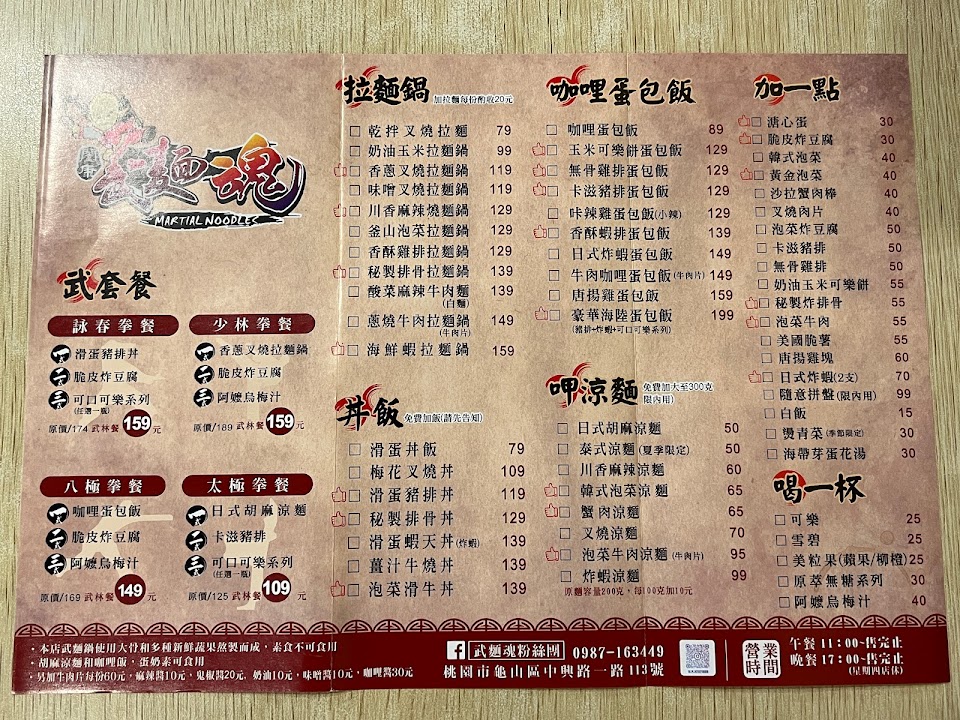 武麵魂
MARTIAL NOODLES
武套餐
詠春拳餐
一 滑蛋豬排丼
二 脆皮炸豆腐
三 可口可樂系列
(任選一瓶)
原價/174 武林餐 159元
少林拳餐
一 香蔥叉燒拉麵鍋
二 脆皮炸豆腐
三 阿嬤烏梅汁
原價/189 武林餐 159元
八極拳餐
一 咖哩蛋包飯
二 脆皮炸豆腐
三 阿嬤烏梅汁
原價/169 武林餐 149元
太極拳餐
一 日式胡麻涼麵
二 卡滋豬排
三 可口可樂系列
(任選一瓶)
原價/125 武林餐 109元
拉麵鍋 加拉麵每份酌收20元
□ 乾拌叉燒拉麵 79
□ 奶油玉米拉麵鍋 99
□ 香蔥叉燒拉麵鍋 119
□ 味噌叉燒拉麵鍋 119
□ 川香麻辣燒麵鍋 129
□ 釜山泡菜拉麵鍋 129
□ 香酥雞排拉麵鍋 129
□ 秘製排骨拉麵鍋 139
□ 酸菜麻辣牛肉麵 139
(白麵)
□ 蔥燒牛肉拉麵鍋 149
(牛肉片)
□ 海鮮蝦拉麵鍋 159
丼飯 免費加飯(請先告知)
□ 滑蛋丼飯 79
□ 梅花叉燒丼 109
□ 滑蛋豬排丼 119
□ 秘製排骨丼 129
□ 滑蛋蝦天丼(炸蝦) 139
□ 薑汁牛燒丼 139
□ 泡菜滑牛丼 139
咖哩蛋包飯
□ 咖哩蛋包飯 89
□ 玉米可樂餅蛋包飯 129
□ 無骨雞排蛋包飯 129
□ 卡滋豬排蛋包飯 129
□ 咔辣雞蛋包飯(小辣) 129
□ 香酥蝦排蛋包飯 139
□ 日式炸蝦蛋包飯 149
□ 牛肉咖哩蛋包飯(牛肉片) 149
□ 唐揚雞蛋包飯 159
□ 豪華海陸蛋包飯 199
(豬排+炸蝦+可口可樂系列)
呷涼麵 免費加大至300克
限內用
□ 日式胡麻涼麵 50
□ 泰式涼麵(夏季限定) 50
□ 川香麻辣涼麵 60
□ 韓式泡菜涼麵 65
□ 蟹肉涼麵 65
□ 叉燒涼麵 70
□ 泡菜牛肉涼麵(牛肉片) 95
□ 炸蝦涼麵 99
原麵容量200克,每100克加10元
加一點
□ 溏心蛋 30
□ 脆皮炸豆腐 30
□ 韓式泡菜 40
□ 黃金泡菜 40
□ 沙拉蟹肉棒 40
□ 叉燒肉片 40
□ 泡菜炸豆腐 50
□ 卡滋豬排 50
□ 無骨雞排 50
□ 奶油玉米可樂餅 55
□ 秘製炸排骨 55
□ 泡菜牛肉 55
□ 美國脆薯 55
□ 唐揚雞塊 60
□ 日式炸蝦(2支) 70
□ 隨意拼盤(限內用) 99
□ 白飯 15
□ 燙青菜(季節限定) 30
□ 海帶芽蛋花湯 30
喝一杯
□ 可樂 25
□ 雪碧 25
□ 美粒果(蘋果/柳橙) 25
□ 原萃無糖系列 30
□ 阿嬤烏梅汁 40
・本店武麵鍋使用大骨和多種新鮮蔬果熬製而成,素食不可食用
・胡麻涼麵和咖哩飯,蛋奶素可食用
・另加牛肉片每份60元,麻辣醬10元,鬼椒醬20元,奶油10元,味噌醬10元,咖哩醬30元
武麵魂粉絲團 0987-163449
桃園市龜山區中興路一路113號
營業時間
午餐 11:00~售完止
晚餐 17:00~售完止
(星期四店休)